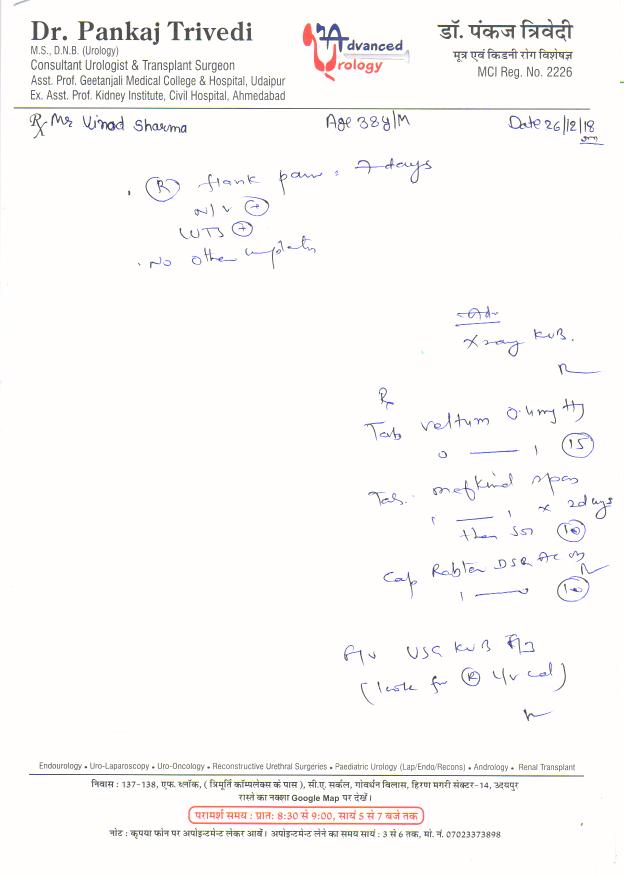 Dr. Pankaj Trivedi
M.S., D.N.B. (Urology)
Consultant Urologist & Transplant Surgeon
Asst. Prof. Geetanjali Medical College & Hospital, Udaipur
Ex. Asst. Prof. Kidney Institute, Civil Hospital, Ahmedabad
Advanced
Urology
डॉ. पंकज त्रिवेदी
मूत्र एवं किडनी रोग विशेषज्ञ
MCI Reg. No. 2226
Rx Mr Vinod Sharma Age 38y/M Date 26/12/18
. (R) flank pain : 7 days
N/V (+)
LUTS (+)
. No other
Adv
Xray KUB.
Rx
Tab veltum 0.4mg
0 — 1 (15)
Tab. mefkind spas
1 — 1 x 2days
then SOS (10)
Cap Rabten DSR AC
1 — 0 (10)
F/U USG KUB
(look for (R) U/V cal)
Endourology • Uro-Laparoscopy • Uro-Oncology • Reconstructive Urethral Surgeries • Paediatric Urology (Lap/Endo/Recons) • Andrology • Renal Transplant
निवास : 137-138, एफ. ब्लॉक, ( त्रिमूर्ति कॉम्पलेक्स के पास ), सी.ए. सर्कल, गोवर्धन विलास, हिरण मगरी सेक्टर-14, उदयपुर
रास्ते का नक्शा Google Map पर देखें।
परामर्श समय : प्रात: 8:30 से 9:00, सायं 5 से 7 बजे तक
नोट : कृपया फोन पर अपॉइन्टमेन्ट लेकर आवें। अपॉइन्टमेन्ट लेने का समय सायं : 3 से 6 तक, मो. नं. 07023373898